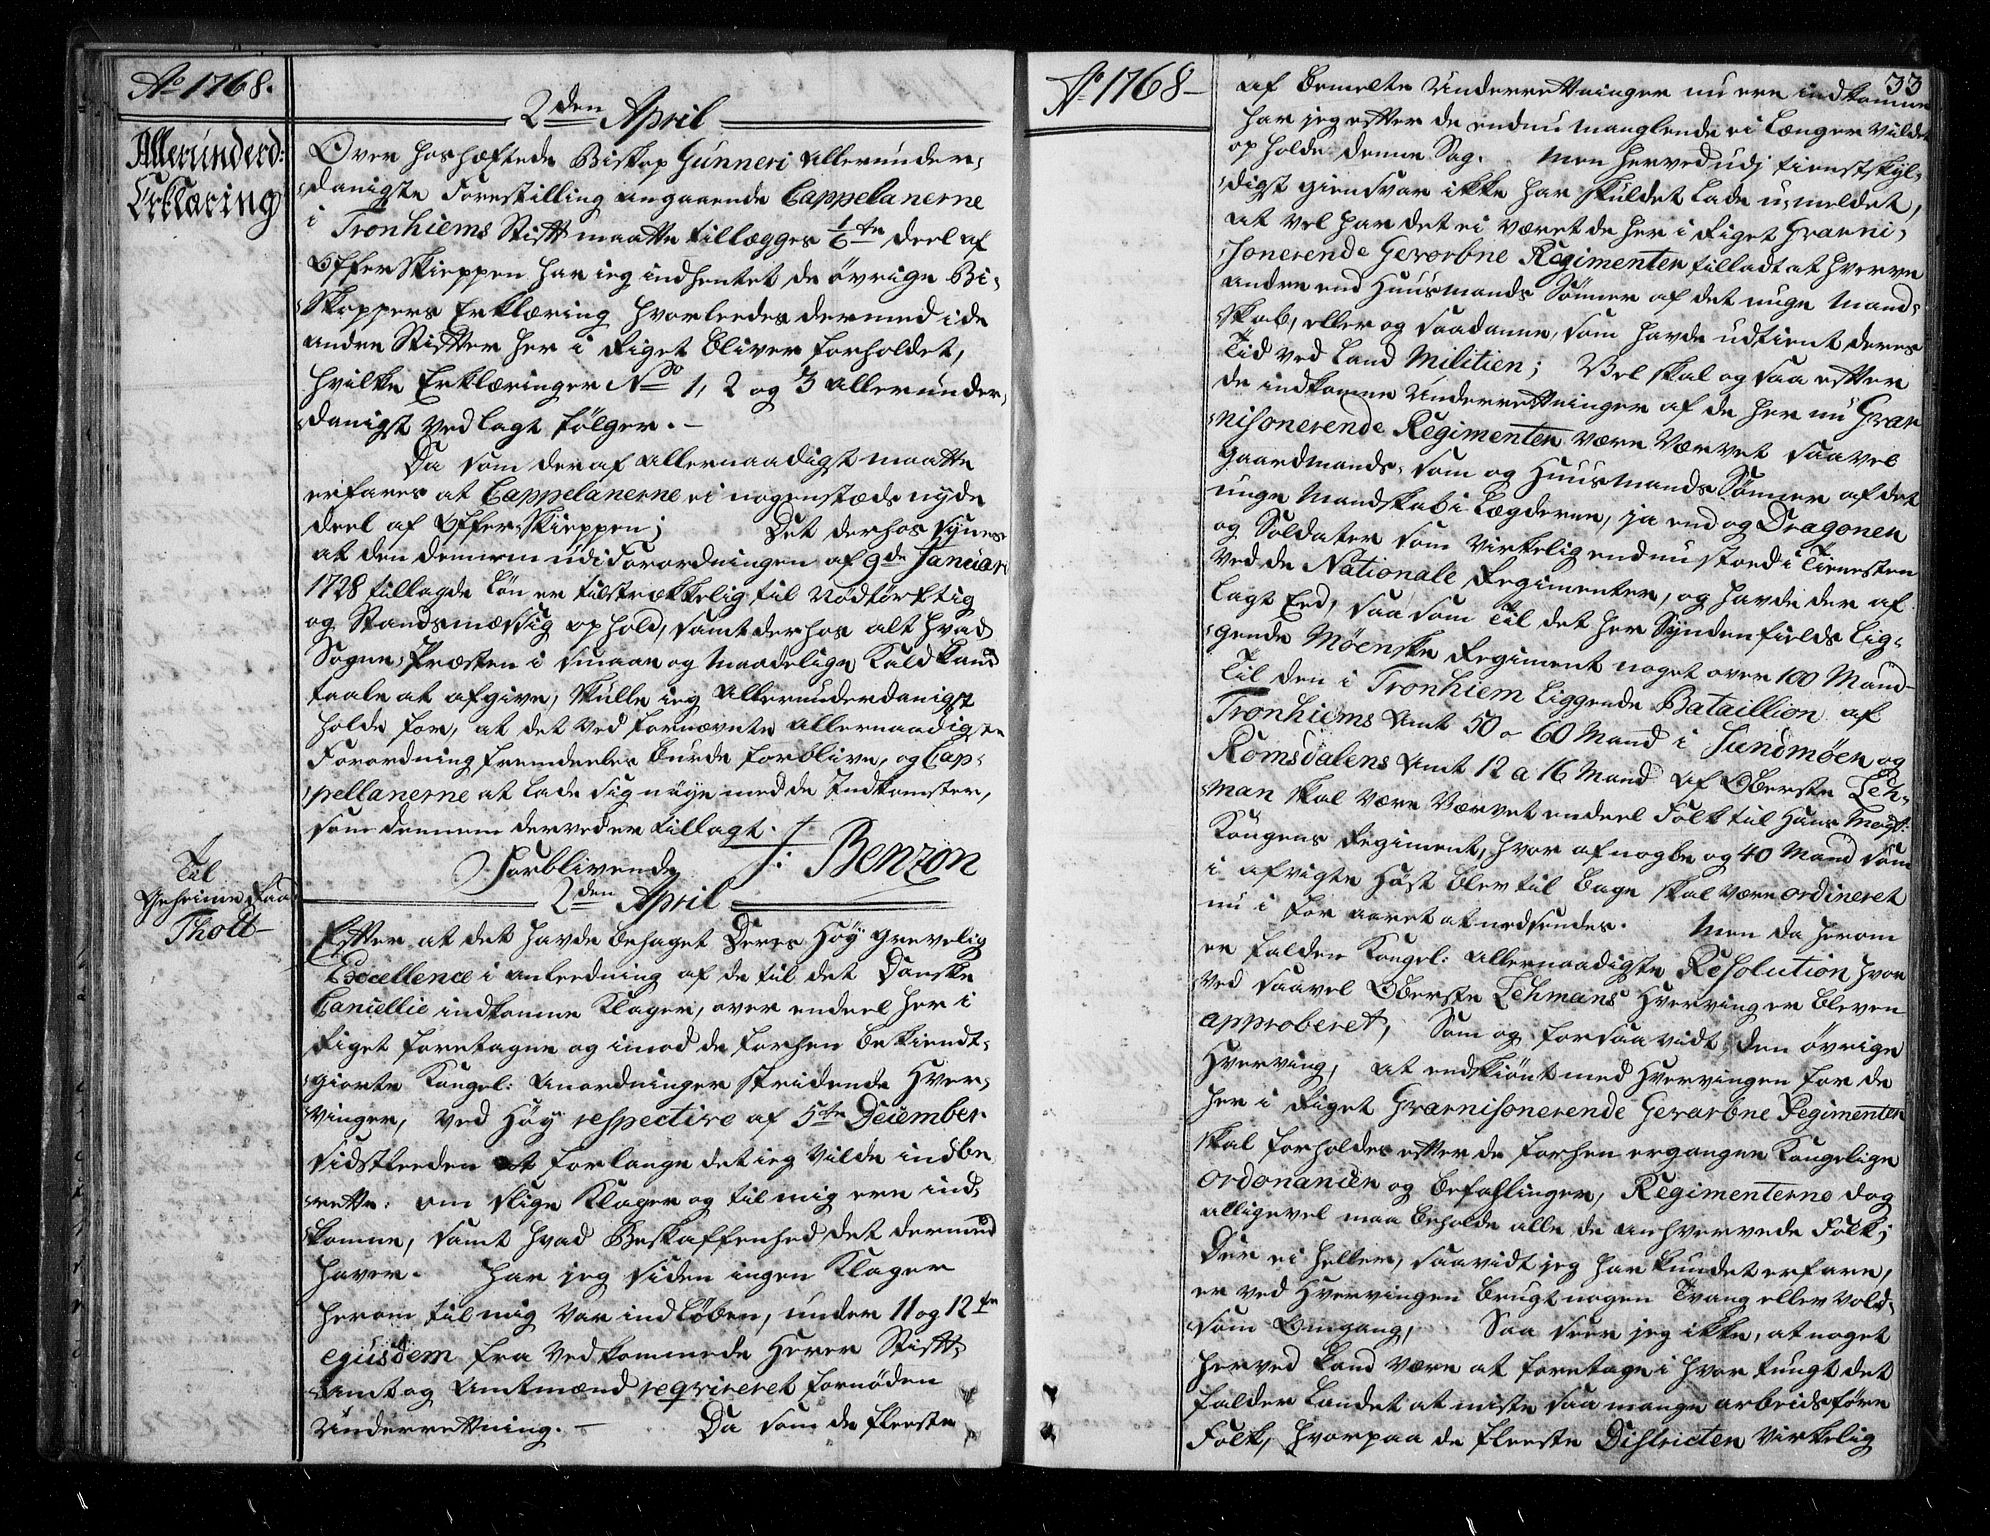 Ao 1768.
2den April
Allerúnderd:
Erklæring
Over hoshæftede Biskop Gúnneri allerunder-
danigste Forestilling angaaende Cappelanerne
i Tronhiems Stift maatte tillægges 1/6te deel af
OfferSkieppen har ieg indhentet de övrige Bi-
skoppers Erklæring hvorleedes dermed i de
andre Stifter her i Riget bliver forholdet,
hvilke Erklæringer No 1, 2 og 3 allerunder-
danigst vedlagt fölger. -
Da som deraf allernaadigst maatte
erfares at Cappelanerne ei nogenstæds nyde
deel af OfferSkieppen; Det derhos synes
at den dennem udi Forordningen af 9de Janúari
1728 tillagde Lön er tilstrækkelig til Nödtörftig
og Standsmæssig ophold, samt derhos alt hvad
Sogne-Præsten i smaae og maadelige Kald kand
taale at afgive, skulle ieg allerunderdanigst
holde for, at det ved fornævnte allernaadigste
Forordning fremdeeles burde forblive, og Cap-
pellanerne at lade sig nöye med de Indkomster,
som dennem derved er tillagt.
Forblivende J: Benzon
2den April
Til
Geheime Raad
Thott
Efter at det havde behaget Deres Höy Grevelig
Excellence i anledning af de til det Danske
Cancellie indkomne Klager, over endeel her i
Riget foretagne og imod de forhen bekiendt-
giorte Kongel: Anordninger stridende Hver-
vinger, ved Höy respective af 5te December
sidstleeden at forlange det ieg vilde indbe-
rette: om slige Klager og til mig ere ind-
komne, samt hvad Beskaffenhed det dermed
haver. Har jeg siden ingen Klager
herom til mig var indlöben, under 11 og 12te
ejusdem fra vedkommende Herrer Stift-
Amt og Amtmænd reqvireret fornöden
Underretning. - Da som de fleeste
Ao 1768 -
33
af bemelte Underretninger nu ere indkomne
har jeg efter de endnu manglende ei længer vildet
opholde denne Sag. Men herved udj tienstskyl-
digst giensvar ikke har skuldet lade u-meldet,
at vel har det ei været de her i Riget Gvarni-
sonerende Gevorbne Regimenter tilladt at hverve
andre end Huusmands Sönner af det unge Mand-
skab, eller og saadanne, som havde udtient deres
Tid ved Land Militien; Vel skal og saa efter
de indkomne Underretninger af de her nu Gvar
nisonerende Regimenter være værvet saavel
gaardmands- som og Huusmands Sönner af det
unge Mandskab i Lægderne, ja end og Dragoner
og Soldater som virkelig endnu stoed i Tienesten
ved de Nationale Regimenter, og havde der af-
lagt Eed, saasom Til det her Syndenfields lig-
gende Möenske Regiment noget over 100 Mand
Til den i Tronhiem liggende Bataillion af
Tronhiems Amt 50 a 60 Mand i Sundmöer og
Romsdalens Amt 12 a 16 Mand Af Oberste Leh-
man skal være værvet endeel Folk til Hans Mayst:
Kongens Regiment, hvor af nogle og 40 Mand som
i afvigte Höst blev til bage skal være ordineret
nu i for aaret at nedsendes. Men da herom
er falden Kongel: allernaadigste Resolution hvor
ved saavel Oberste Lehmans Hvervinger bleven
approberet, Som og forsaavidt den övrige
Hverving, at endskiönt med Hvervingen for de
her i Riget Gvarnisonerende Gevorbne Regimenter
skal forholdes efter de forhen ergangne Kongelige
ordonancer og befalinger, Regimenterne dog
alligevel maa beholde alle de anhvervede Folk;
Der ei heller, saavidt jeg har kundet erfare,
er ved Hvervingen brugt nogen Tvang eller vold-
som Omgang, Saa seer jeg ikke, at noget
herved kand være at foretage i hvor tungt det
falder Landet at miste saa mange arbeidsföre
Folk, hvorpaa de fleeste Districter virkelig